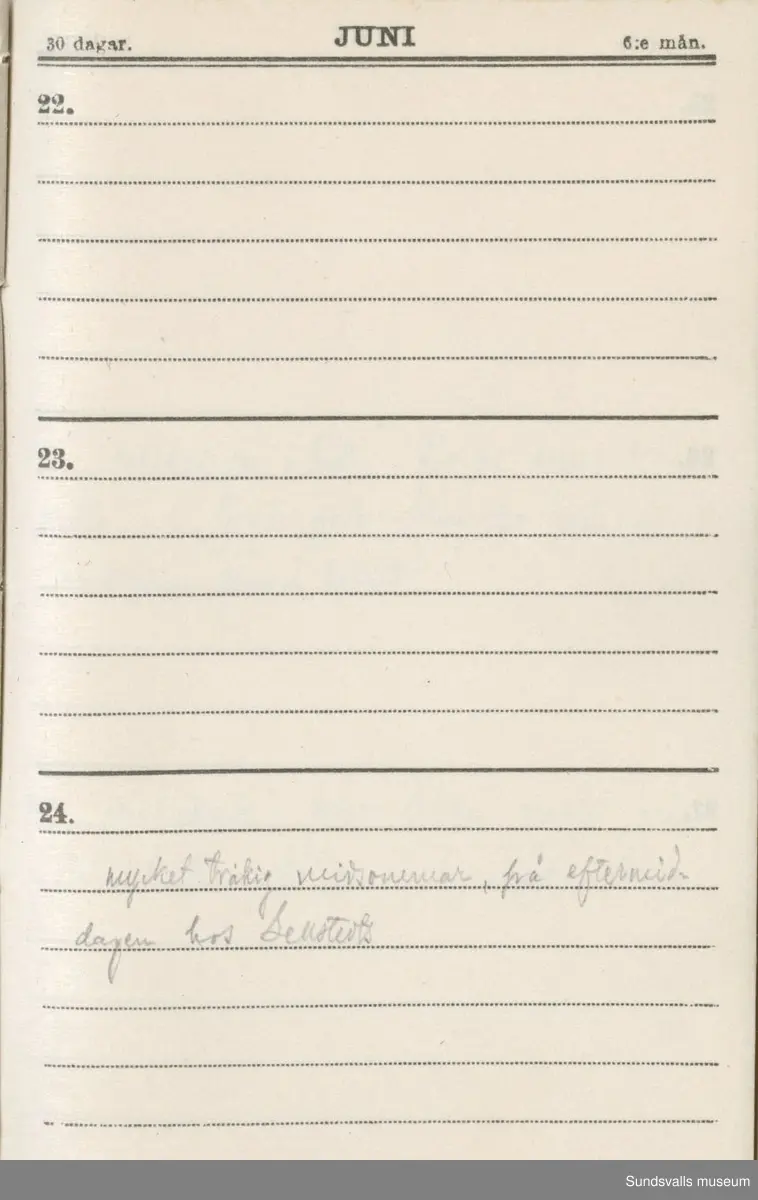 30 dagar. JUNI 6:e mån.
22.
23.
24.
mycket tråkig midsommar, på eftermid-
dagen hos
Sundsvalls museum